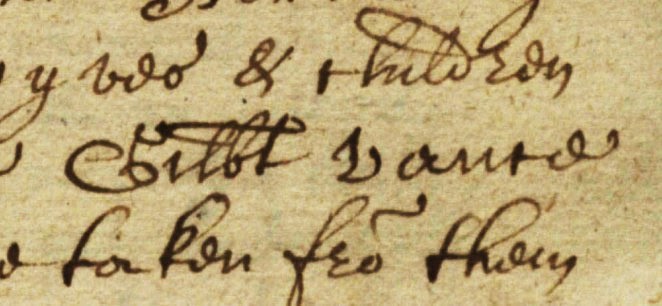 yves & children
Gilbt Vance
taken frō them